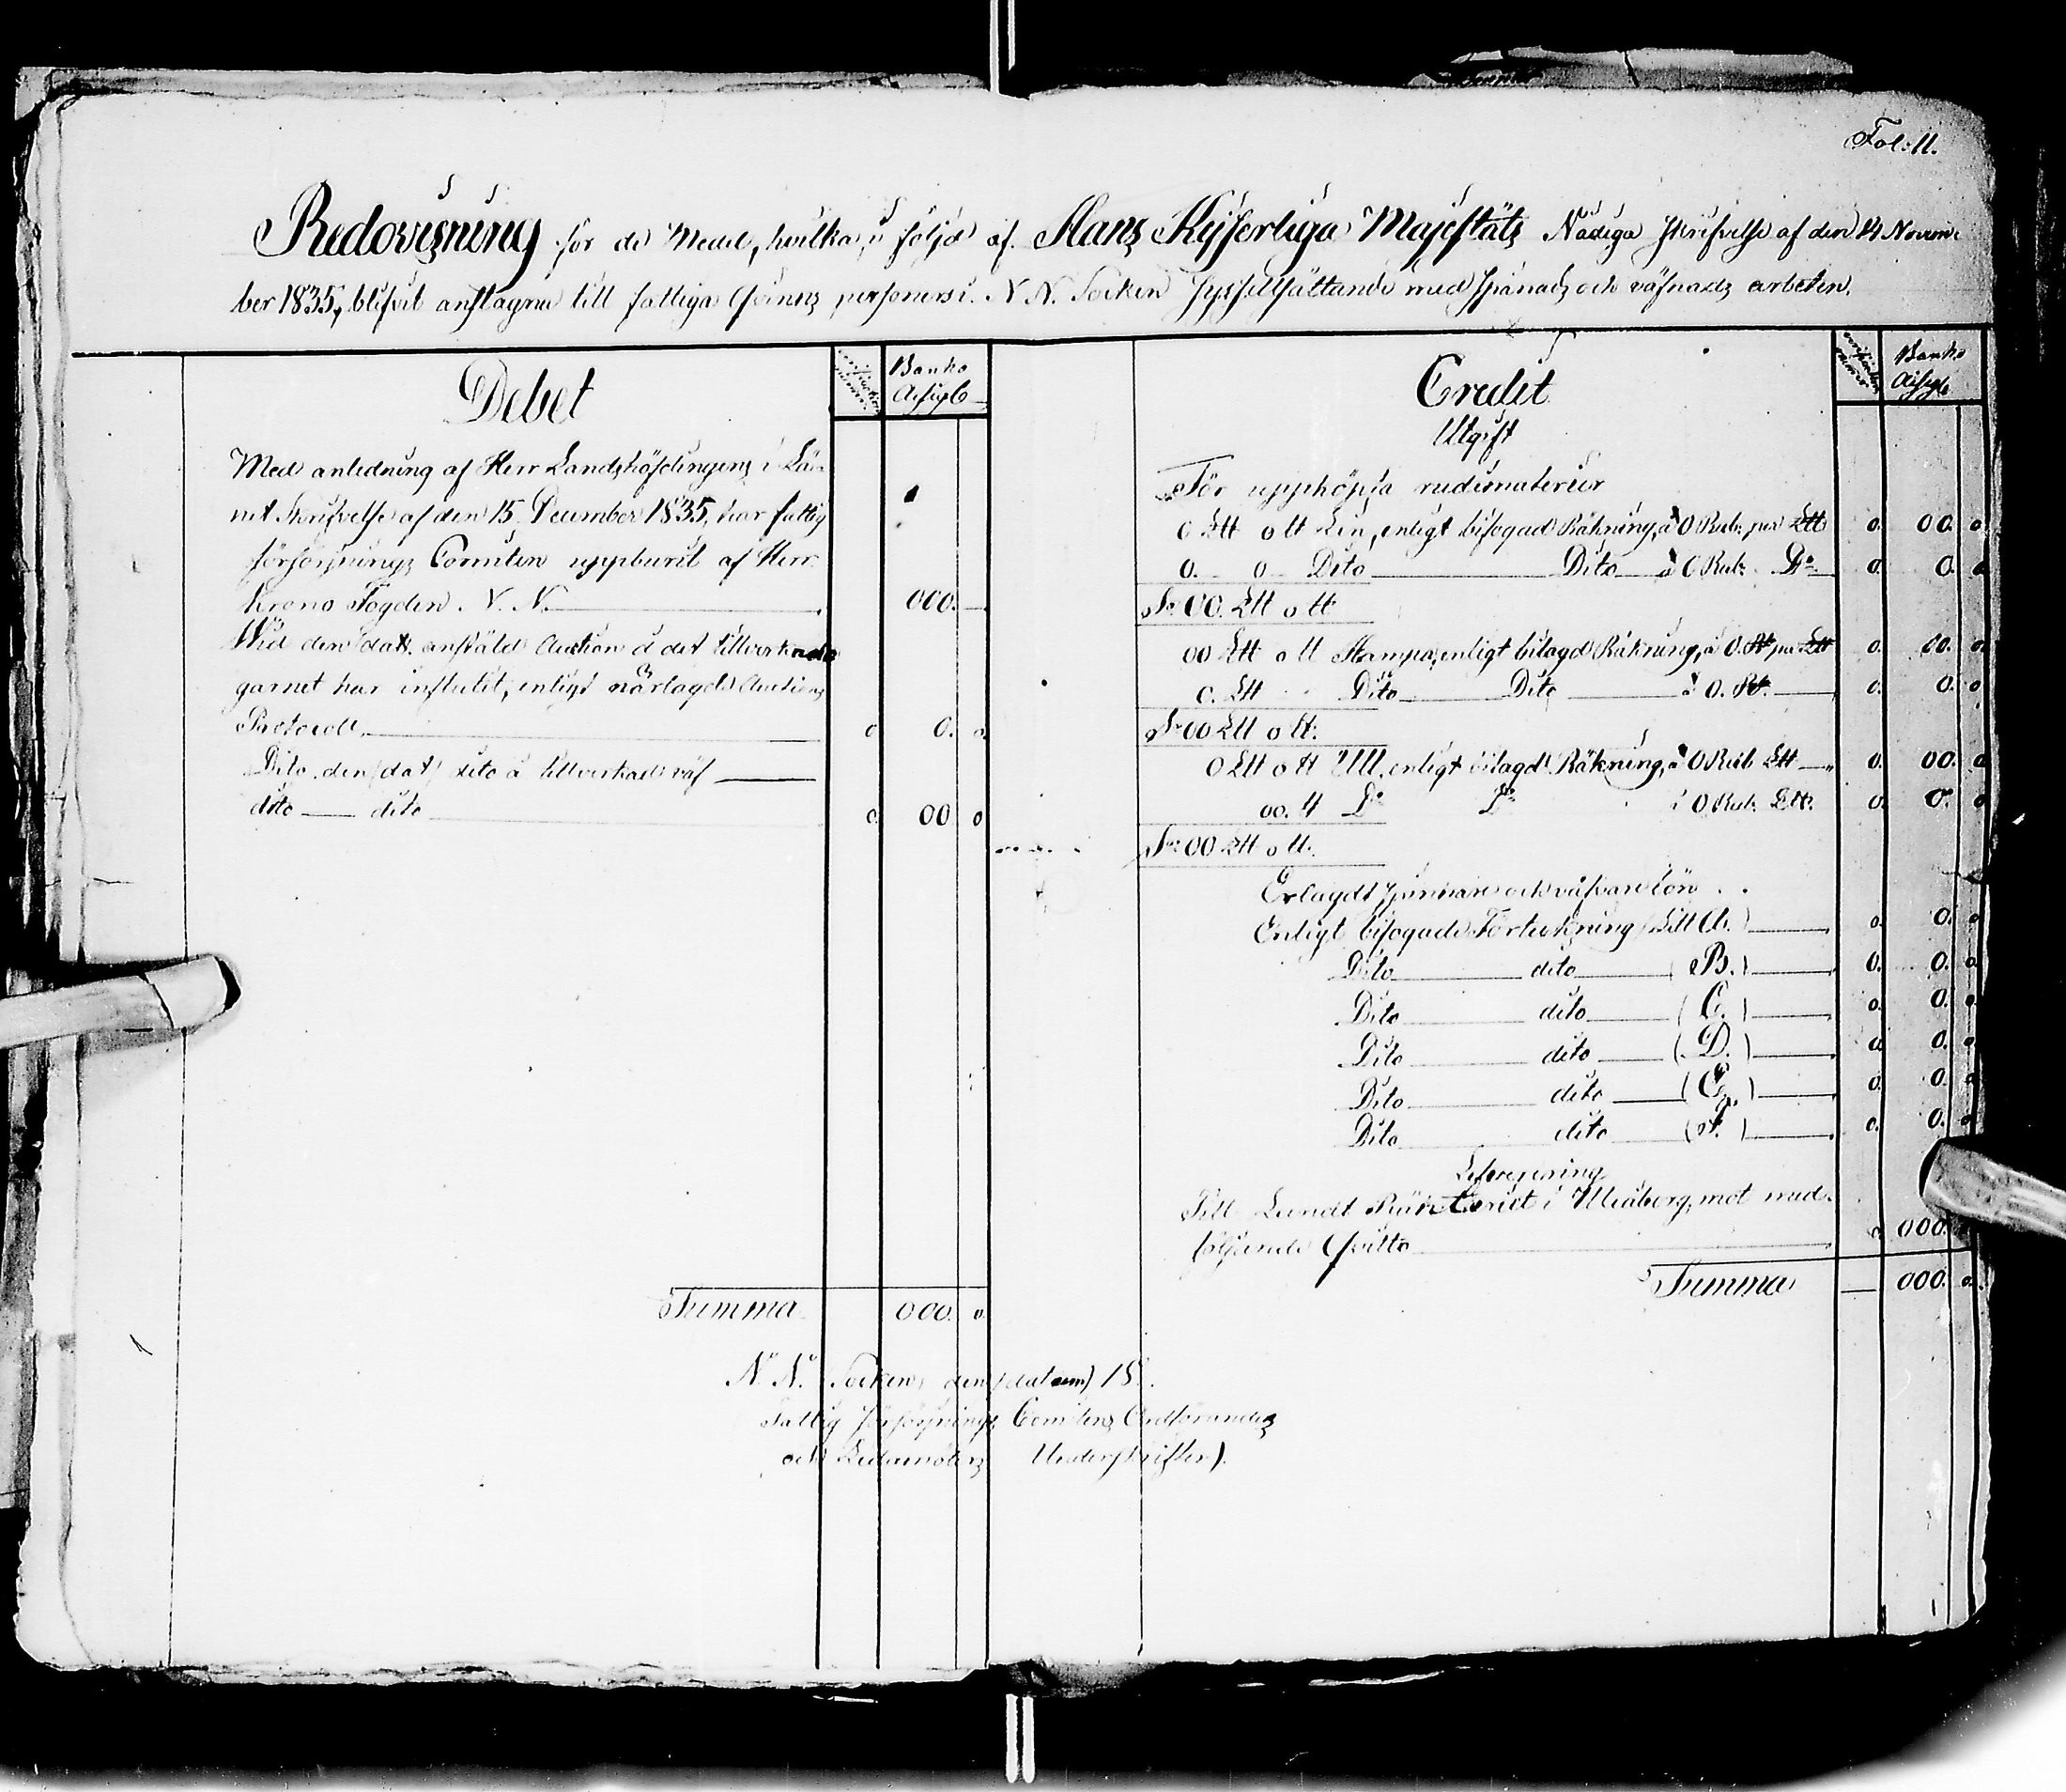 Fol: 11.
Redovisning för de Medel, hvilka, i följd af Hans Kejserliga Majestäts Nådiga skrifvelse af den 14 Novem-
ber 1835, blifvit anslagne till fattiga Qvinns personers i N. N. Socken sysselsättande med spånads och väfnads arbeten.
Debet
Verifications numer
Banko Assigb
Med anledning af Herr Landshöfdingens i Lä-
net Skrifvelse af den 15 December 1835, har fattig
försörjnings Comitén uppburit af Herr
Krono Fogden N. N. 000. —
Wid den /dat/ anstäld Auction å det tillverkade
garnet har influtit, enligt närlagde Auctions
Protocoll, 0 0. 0.
Dito den /dat/ dito å tillverkad väf
dito — dito 0. 00 0
Summa 000. 0.
Credit
Verifications numer
Banko Assigb
Utgift
För uppköpta rudimaterier
0 L℔ 0 ℔ Lin, enligt bifogad Räkning, à 0 Rub. per L℔ 0. 00. 0.
0. 0 Dito Dito à 0 Rub. Do 0. 0. 0
Sr 00. L℔ 0 ℔
00 L℔ 0 ℔ Hampa, enligt bilagd Räkning, à 0. R. per L℔ 0. 00. 0
0. L℔ Dito Dito à 0. R. 0. 0. 0
Sr 00 L℔ 0 ℔.
0 L℔ 0 ℔ Ull, enligt bilagd Räkning, à 0 Rub L℔ 0. 00. 0
00. ℔ Do Do à 0 Rub. L℔. 0. 0. 0
Sr 00 L℔ 0 ℔.
Erlagdt spinnare och väfvare lön
Enligt bifogade Förteckning (Litt A.) 0. 0. 0
Dito dito (B.) 0. 0. 0
Dito dito (C.) 0. 0. 0
Dito dito (D.) 0 0. 0
Dito dito (E.) 0. 0. 0
Dito dito (F.) 0. 0. 0
Lefverering
Till Landt Ränteriet i Uleåborg, mot med-
följande Qvitto 0 000.
Summa — 000. 0.
N. N. Socken, den (datum) 18 .
Fattig försörjnings Comitens Ordförandes
och Ledamöters Underskrifter).